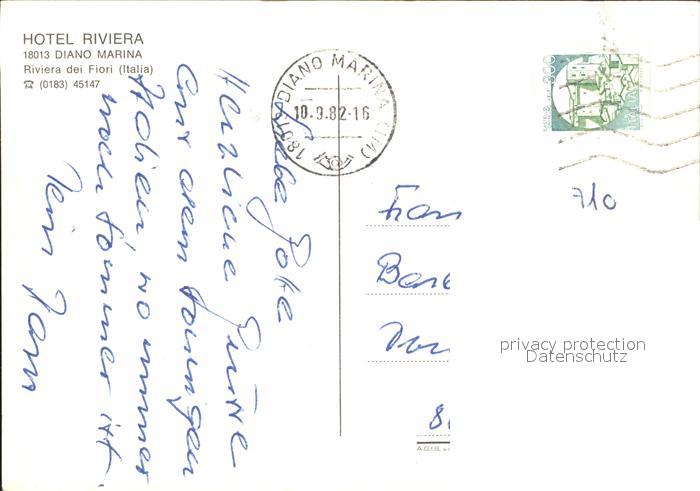 HOTEL RIVIERA
18013 DIANO MARINA
Riviera dei Fiori (Italia)
☎ (0183) 45147
DIANO MARINA (IM)
10.9.82-16
300
Liebe Gote
Herzliche Grüße
aus dem sonnigen
Italien, wo immer
noch Sommer ist.
Dein
710
Fran
8
A.G.I.S.
privacy protection
Datenschutz